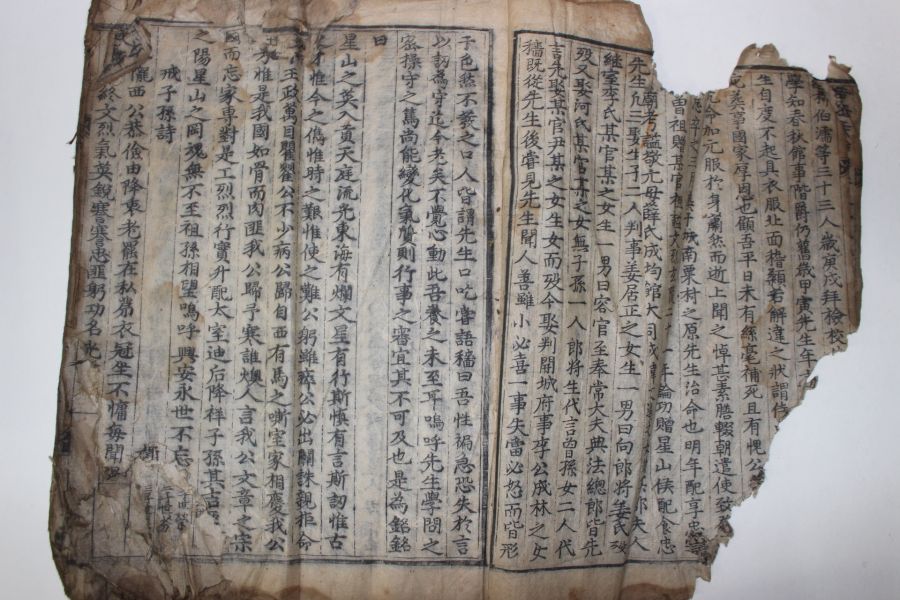 新伯濡等三十三人歲庚戌拜檢校
學知春秋館事階爵仍舊歲甲寅先生年
生自度不起具衣服北面稽顙若解違之狀謂侍
葬事國家厚恩也顧吾平日未有絲毫補死且有愧
命加元服於身肅然而逝上聞之悼甚素膳輟朝遣使致
南栗村之原先生治命也明年配享忠
曾祖贈某官 年論功贈星山侯配食忠
廟考謚敬元母薛氏成均館大司成 夫人
先生凡三娶生子二人判事姜居正之女生一男曰向郎將姜氏歿
繼室李氏某官某之女生一男曰容官至奉常大夫典法總郎皆先
歿又娶河氏某官某之女無子孫一人郎將生代言曾孫女二人代
言先娶某官尹某之女生女而歿今娶判開城府事李公成林之女
穡既從先生後嘗見先生聞人善雖小必喜一事失當必怒而皆形
于色然不發之口人皆謂先生口吃嘗語穡曰吾性褊急恐失於言
以訒為守迄今老矣不覺心動此吾養之未至耳嗚呼先生學問之
密操守之篤尚能變化氣質則行事之審宜其不可及也是為銘銘
曰
星山之英入貢天庭流光東海有爛文星有行斯愼有言斯訒惟古
才惟今之僞惟時之艱惟使之難公躬雖瘁公必出關誅親拒命
王政萬目瞿瞿公不少病公歸自西有馬之嘶室家相慶我公
惟是我國如骨而肉匪我公歸予寒誰燠人言我公文章之宗
國而忘家專對是工烈烈行實升配太室迪后降祥子孫其吉
之陽星山之岡魂無不至祖孫相望嗚呼興安永世不忘
戒子孫詩
隴西公恭儉由降衷老罷在私第衣冠坐不慵每聞
終文烈氣英銳謇謇忠匪躬功名